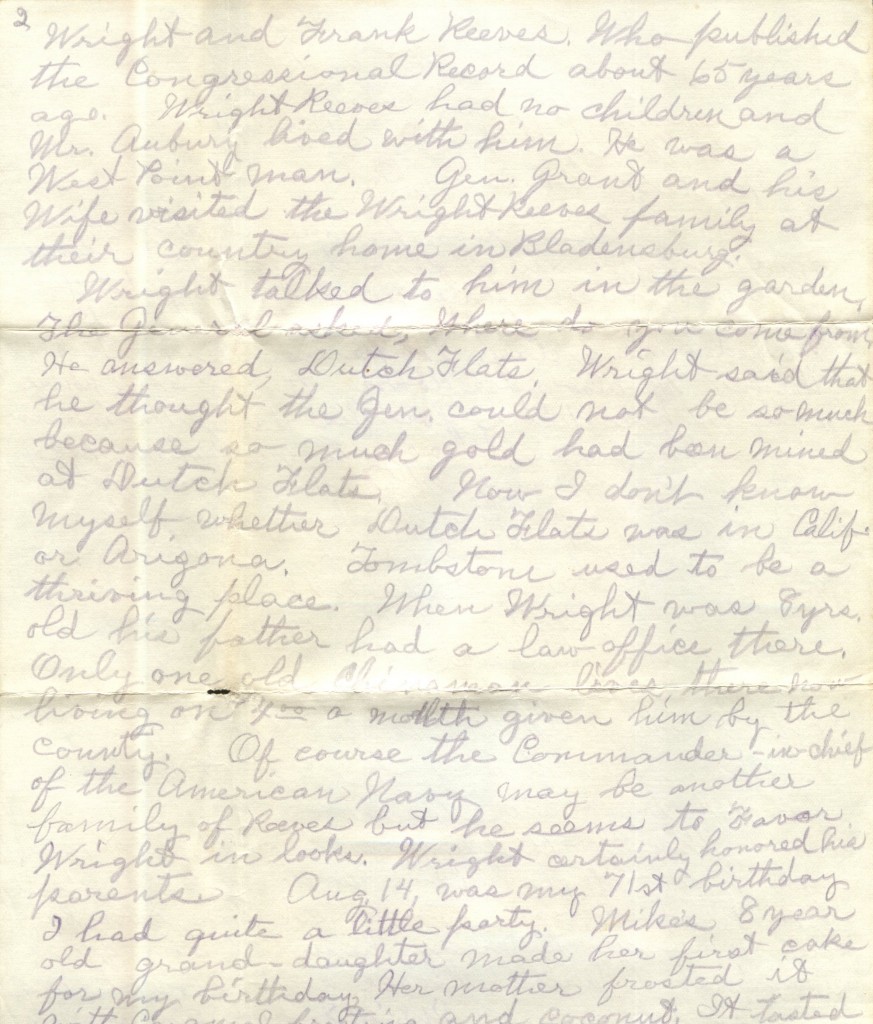 2
Wright and Frank Reeves. Who published
the Congressional Record about 65 years
ago. Wright Reeves had no children and
Mr. Aubury lived with him. He was a
West Point man. Gen. Grant and his
Wife visited the Wright Reeves family at
their country home in Bladensburg.
Wright talked to him in the garden,
The General asked, Where do you come from,
He answered, Dutch Flats. Wright said that
he thought the Gen. could not be so much
because so much gold had been mined
at Dutch Flats. Now I don't know
myself whether Dutch Flats was in Calif.
or Arizona. Tombstone used to be a
thriving place. When Wright was 8 yrs.
old his father had a law office there.
Only one old Chinaman lives there now
living on 4.00 a month given him by the
county. Of course the Commander-in-chief
of the American Navy may be another
family of Reeves but he seems to Favor
Wright in looks. Wright certainly honored his
parents. Aug. 14, was my 71st birthday
I had quite a little party. Mike's 8 year
old grand-daughter made her first cake
for my birthday. Her mother frosted it
with Caramel frosting and coconut. It tasted